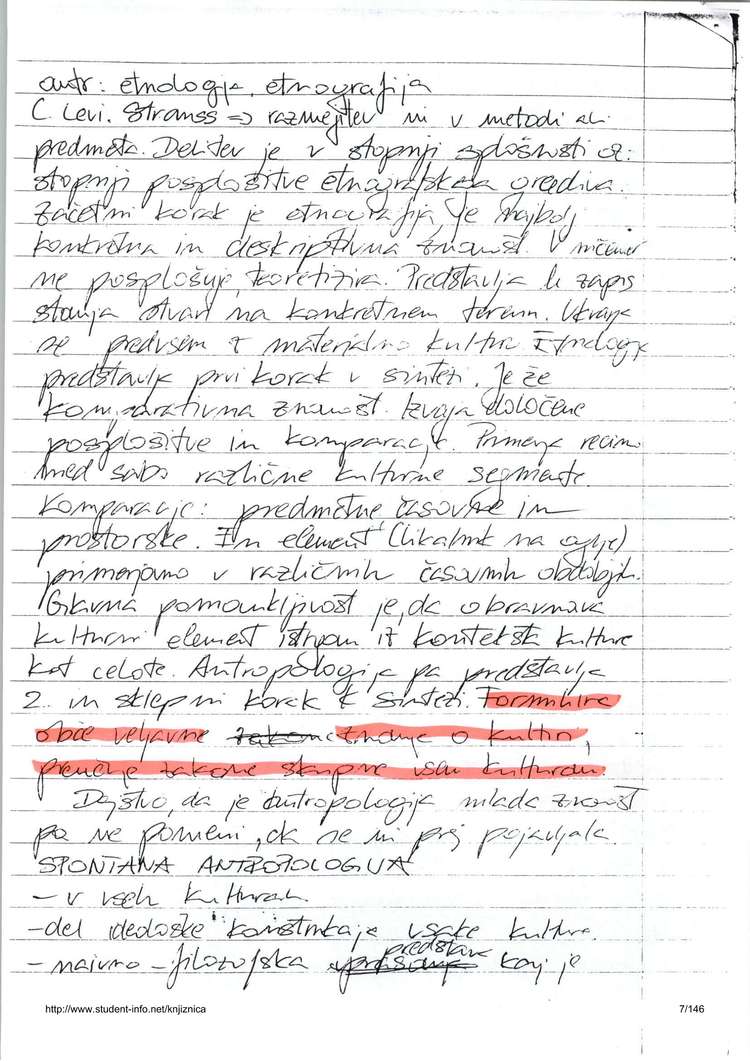 antr: etnologija, etnografija
C. Levi. Strauss => razmejitev ni v metodi ali
predmeta. Delitev je v stopnji splošnosti oz.
stopnji posplošitve etnografskega gradiva.
Začetni korak je etnografija, je najbolj
konkretna in deskriptivna znanost. V ničemer
ne posplošuje, teoretizira. Predstavlja le zapis
stanja stvari na konkretnem terenu. Ukvarja
se predvsem z materialno kulturo. Etnologija
predstavlja prvi korak v sintezi. Je že
komparativna znanost. Izvaja določene
posplošitve in komparacije. Primerja recimo
med sabo različne kulturne segmente.
Komparacije: predmetne časovne in
prostorske. En element (likalnik na oglje)
primerjamo v različnih časovnih obdobjih.
Glavna pomanjkljivost je, da obravnava
kulturni element istrgan iz konteksta kulture
kot celote. Antropologija pa predstavlja
2. in sklepni korak k sintezi. Formulira
obče veljavne zakone znanje o kulturi,
preučuje zakone skupne vsem kulturam.
Dejstvo, da je antropologija mlada znanost
pa ne pomeni, da se ni prej pojavljala.
SPONTANA ANTROPOLOGIJA
- v vseh kulturah.
- del ideološke konstrukcije vsake kulture.
- naivno - filozofska predstave kaj je
http://www.student-info.net/knjiznica
7/146